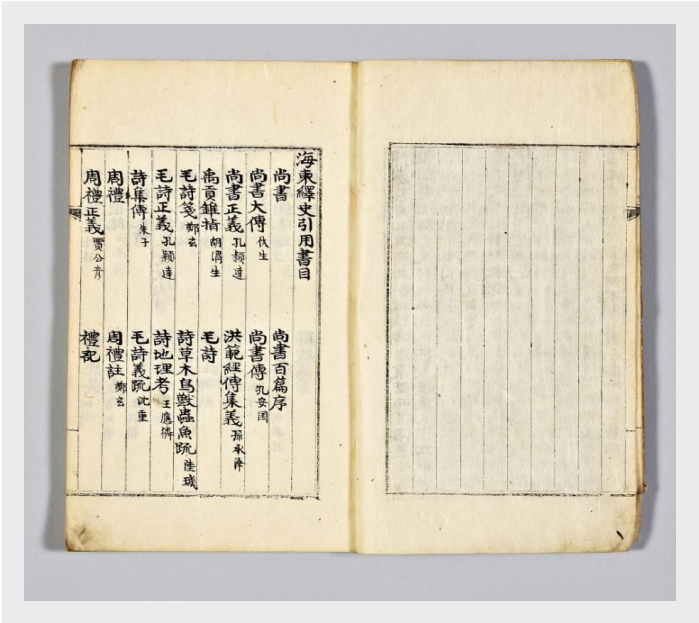 海東繹史引用書目
尚書 尚書百篇序
尚書大傳 伏生 尚書傳 孔安国
尚書正義 孔穎達 洪範經傳集義 孫承澤
禹貢錐指 胡渭生 毛詩
毛詩箋 鄭玄 詩草木鳥獸蟲魚䟽 陸璣
毛詩正義 孔穎達 詩地理考 王應獜
詩集傳 朱子 毛詩義䟽 沈重
周禮 周禮註 鄭玄
周禮正義 賈公彦 禮記